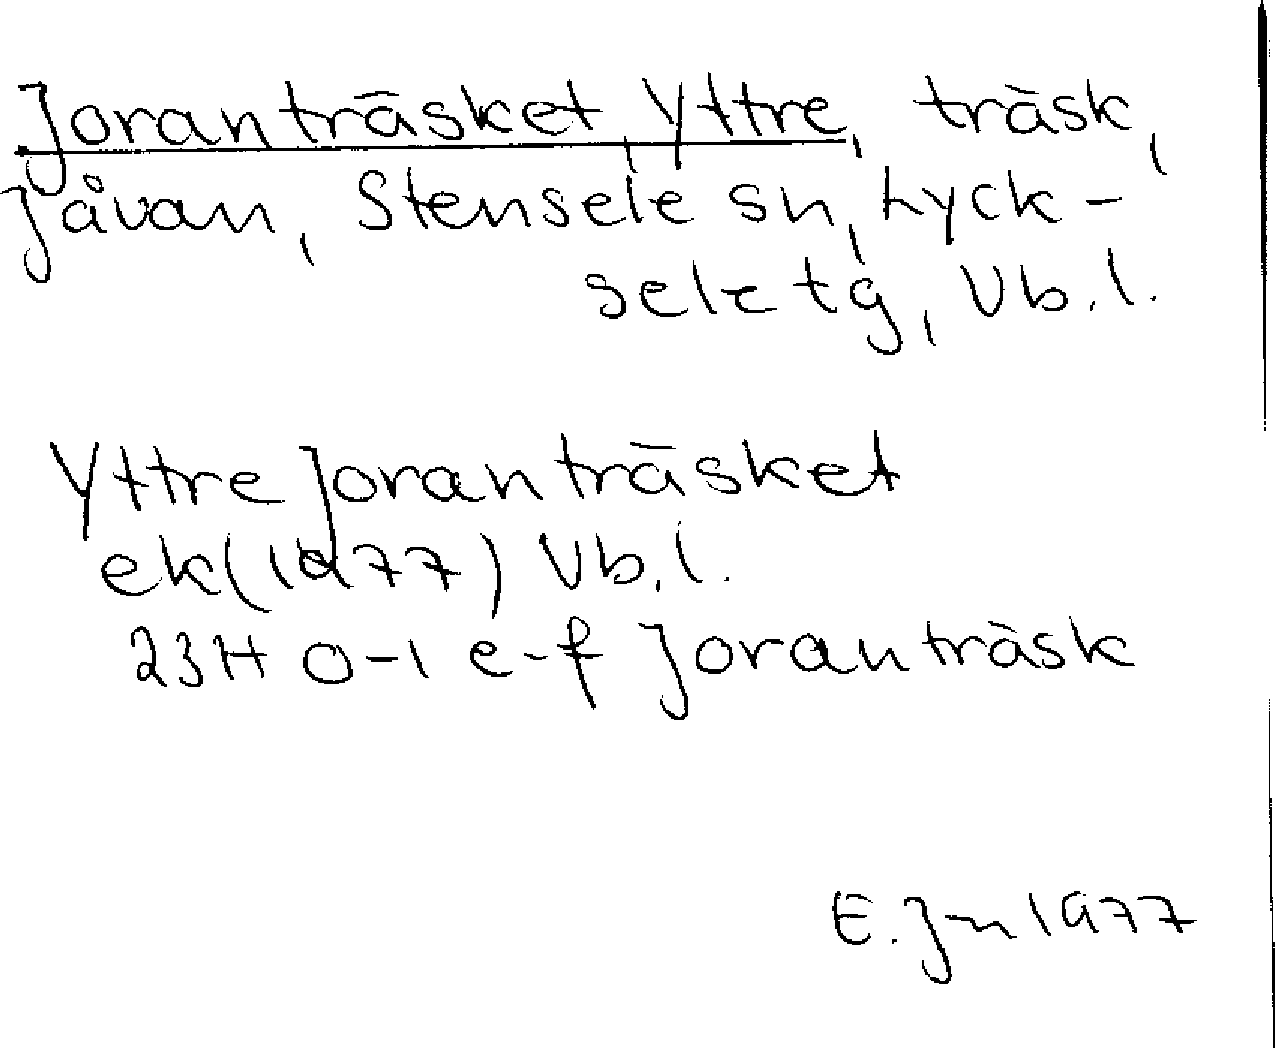 Joranträsket, Yttre, träsk,
Jåvan, Stensele sn, Lyck-
sele tg, Vb.l.
Yttre Joranträsket
ek(1977) Vb.l.
23H 0-1 e-f Joranträsk
E. Jn 1977